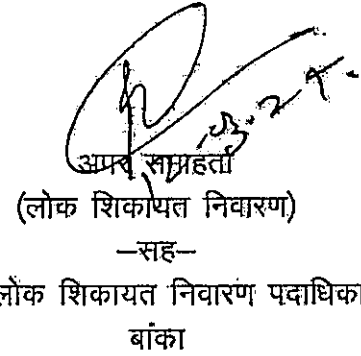 अपर समाहर्ता
(लोक शिकायत निवारण)
–सह–
लोक शिकायत निवारण पदाधिका
बांका